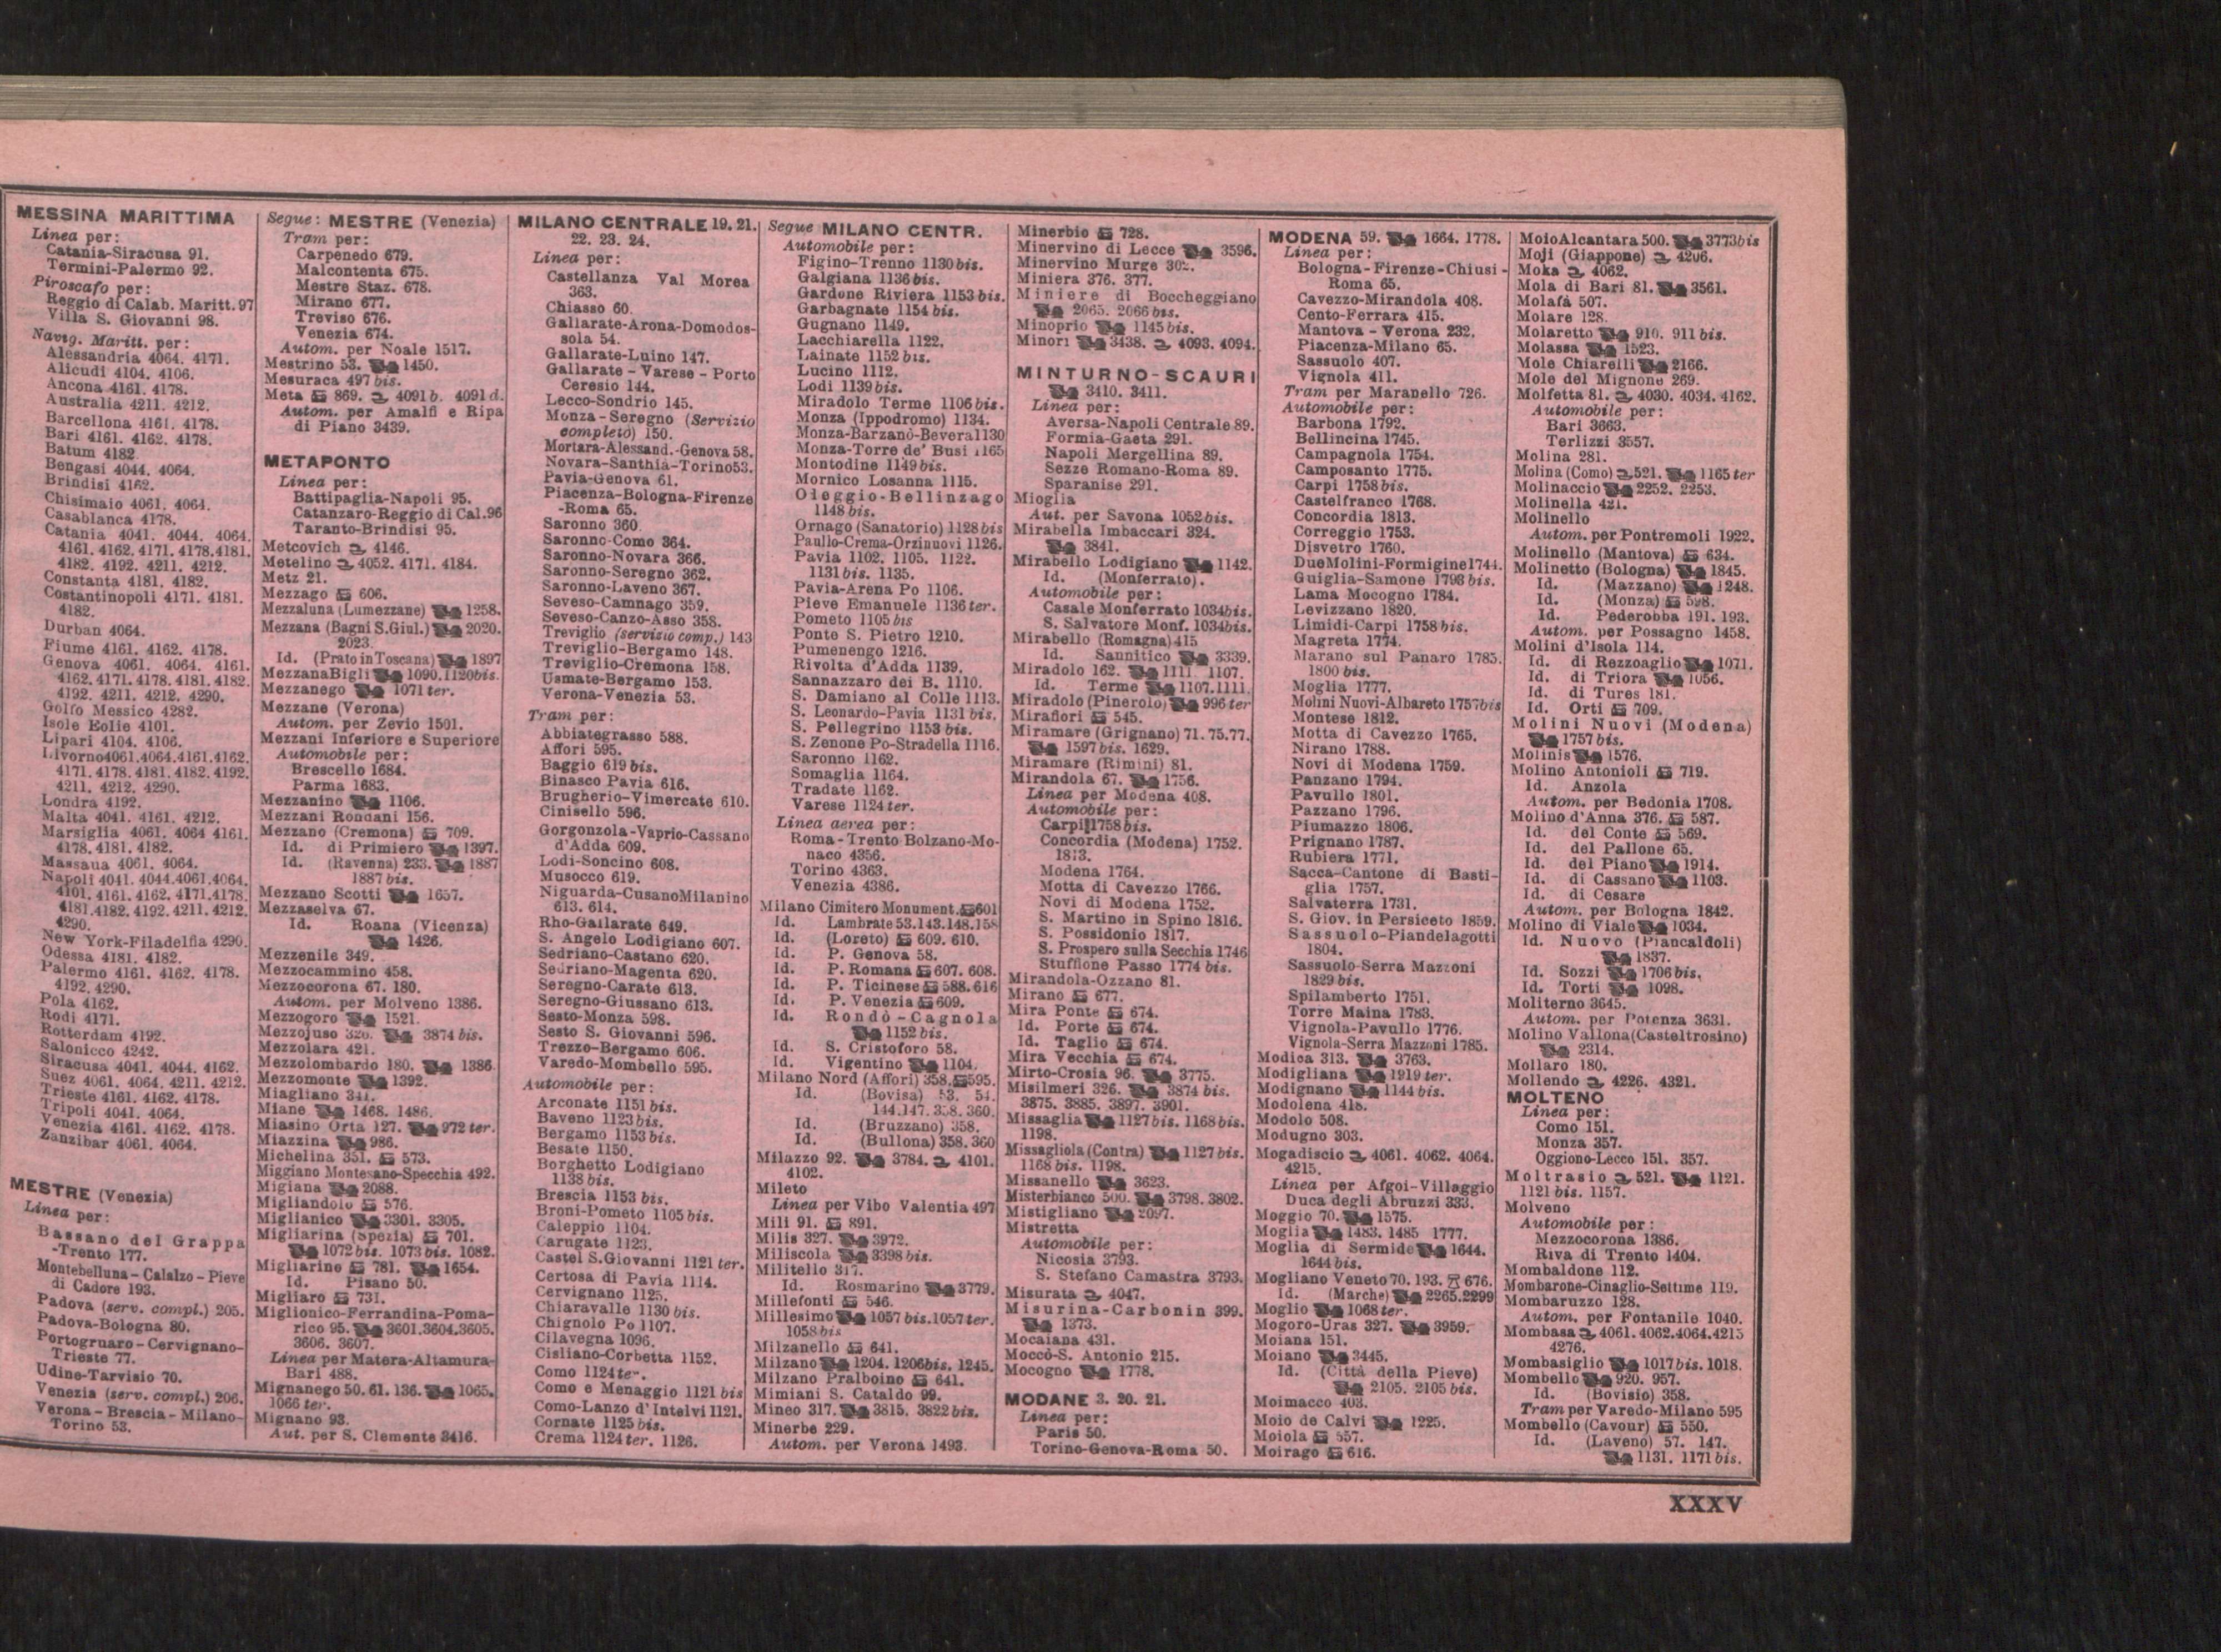 MESSINA MARITTIMA
Linea per:
Catania-Siracusa 91.
Termini-Palermo 92.
Piroscafo per:
Reggio di Calab. Maritt. 97
Villa S. Giovanni 98.
Navig. Maritt. per:
Alessandria 4064. 4171.
Alicudi 4104. 4106.
Ancona 4161. 4178.
Australia 4211. 4212.
Barcellona 4161. 4178.
Bari 4161. 4162. 4178.
Batum 4182
Bengasi 4044. 4064.
Brindisi 4162.
Chisimaio 4061. 4064.
Casablanca 4178.
Catania 4041. 4044. 4064.
4161. 4162. 4171. 4178. 4181.
4182. 4192. 4211. 4212.
Constanta 4181. 4182.
Costantinopoli 4171. 4181.
4182.
Durban 4064.
Fiume 4161. 4162. 4178.
Genova 4061. 4064. 4161.
4162. 4171. 4178. 4181. 4182.
4192. 4211. 4212. 4290.
Golfo Messico 4282.
Isole Eolie 4101.
Lipari 4104. 4106.
Livorno 4061. 4064. 4161. 4162.
4171. 4178. 4181. 4182. 4192.
4211. 4212. 4290.
Londra 4192.
Malta 4041. 4161. 4212.
Marsiglia 4061. 4064 4161.
4178. 4181. 4182.
Massaua 4061. 4064.
Napoli 4041. 4044. 4061. 4064.
4101. 4161. 4162. 4171. 4178.
4181. 4182. 4192. 4211. 4212.
4290.
New York-Filadelfia 4290.
Odessa 4181. 4182.
Palermo 4161. 4162. 4178.
4192. 4290.
Pola 4162.
Rodi 4171.
Rotterdam 4192.
Salonicco 4242.
Siracusa 4041. 4044. 4162.
Suez 4061. 4064. 4211. 4212.
Trieste 4161. 4162. 4178.
Tripoli 4041. 4064.
Venezia 4161. 4162. 4178.
Zanzibar 4061. 4064.
MESTRE (Venezia)
Linea per:
Bassano del Grappa
-Trento 177.
Montebelluna - Calalzo - Pieve
di Cadore 193.
Padova (serv. compl.) 205.
Padova-Bologna 80.
Portogruaro - Cervignano-
Trieste 77.
Udine-Tarvisio 70.
Venezia (serv. compl.) 206.
Verona - Brescia - Milano-
Torino 53.
Segue: MESTRE (Venezia)
Tram per:
Carpenedo 679.
Malcontenta 675.
Mestre Staz. 678.
Mirano 677.
Treviso 676.
Venezia 674.
Autom. per Noale 1517.
Mestrino 53. 1450.
Mesuraca 497 bis.
Meta 869. 4091 b. 4091 d.
Autom. per Amalfi e Ripa
di Piano 3439.
METAPONTO
Linea per:
Battipaglia-Napoli 95.
Catanzaro-Reggio di Cal. 96
Taranto-Brindisi 95.
Metcovich 4146.
Metelino 4052. 4171. 4184.
Metz 21.
Mezzago 606.
Mezzaluna (Lumezzane) 1258.
Mezzana (Bagni S. Giul.) 2020.
2023.
Id. (Prato in Toscana) 1897
Mezzana Bigli 1090. 1120 bis.
Mezzanego 1071 ter.
Mezzane (Verona)
Autom. per Zevio 1501.
Mezzani Inferiore e Superiore
Automobile per:
Brescello 1684.
Parma 1683.
Mezzanino 1106.
Mezzani Rondani 156.
Mezzano (Cremona) 709.
Id. di Primiero 1397.
Id. (Ravenna) 233. 1887
1887 bis.
Mezzano Scotti 1657.
Mezzaselva 67.
Id. Roana (Vicenza)
1426.
Mezzenile 349.
Mezzocammino 458.
Mezzocorona 67. 180.
Autom. per Molveno 1386.
Mezzogoro 1521.
Mezzojuso 326. 3874 bis.
Mezzolara 421.
Mezzolombardo 180. 1386
Mezzomonte 1392.
Miagliano 341.
Miane 1468. 1486.
Miasino Orta 127. 972 ter.
Miazzina 986.
Michelina 351. 573.
Miggiano Montesano-Specchia 492.
Migiana 2088.
Migliandolo 576.
Miglianico 3301. 3305.
Migliarina (Spezia) 701.
1072 bis. 1073 bis. 1082.
Migliarino 781. 1654.
Id. Pisano 50.
Migliaro 731.
Miglionico-Ferrandina-Poma-
rico 95. 3601. 3604. 3605.
3606. 3607.
Linea per Matera-Altamura-
Bari 488.
Mignanego 50. 61. 136. 1065.
1066 ter.
Mignano 93.
Aut. per S. Clemente 3416.
MILANO CENTRALE 19. 21.
22. 23. 24.
Linea per:
Castellanza Val Morea
363.
Chiasso 60.
Gallarate-Arona-Domodos-
sola 54.
Gallarate-Luino 147.
Gallarate - Varese - Porto
Ceresio 144.
Lecco-Sondrio 145.
Monza - Seregno (Servizio
completo) 150.
Mortara-Alessand.-Genova 58.
Novara-Santhià-Torino 53.
Pavia-Genova 61.
Piacenza-Bologna-Firenze
-Roma 65.
Saronno 360.
Saronno-Como 364.
Saronno-Novara 366.
Saronno-Seregno 362.
Saronno-Laveno 367.
Seveso-Camnago 359.
Seveso-Canzo-Asso 358.
Treviglio (servizio comp.) 143
Treviglio-Bergamo 148.
Treviglio-Cremona 158.
Usmate-Bergamo 153.
Verona-Venezia 53.
Tram per:
Abbiategrasso 588.
Affori 595.
Baggio 619 bis.
Binasco Pavia 616.
Brugherio-Vimercate 610.
Cinisello 596.
Gorgonzola-Vaprio-Cassano
d'Adda 609.
Lodi-Soncino 608.
Musocco 619.
Niguarda-Cusano Milanino
613. 614.
Rho-Gallarate 649.
S. Angelo Lodigiano 607.
Sedriano-Castano 620.
Sedriano-Magenta 620.
Seregno-Carate 613.
Seregno-Giussano 613.
Sesto-Monza 598.
Sesto S. Giovanni 596.
Trezzo-Bergamo 606.
Varedo-Mombello 595.
Automobile per:
Arconate 1151 bis.
Baveno 1123 bis.
Bergamo 1153 bis.
Besate 1150.
Borghetto Lodigiano
1138 bis.
Brescia 1153 bis.
Broni-Pometo 1105 bis.
Caleppio 1104.
Carugate 1123.
Castel S. Giovanni 1121 ter.
Certosa di Pavia 1114.
Cervignano 1125.
Chiaravalle 1130 bis.
Chignolo Po 1107.
Cilavegna 1096.
Cisliano-Corbetta 1152.
Como 1124 ter.
Como e Menaggio 1121 bis
Como-Lanzo d'Intelvi 1121.
Cornate 1125 bis.
Crema 1124 ter. 1126.
Segue MILANO CENTR.
Automobile per:
Figino-Trenno 1130 bis.
Galgiana 1136 bis.
Gardone Riviera 1153 bis.
Garbagnate 1154 bis.
Gugnano 1149.
Lacchiarella 1122.
Lainate 1152 bis.
Lucino 1112.
Lodi 1139 bis.
Miradolo Terme 1106 bis.
Monza (Ippodromo) 1134.
Monza-Barzanò-Bevera 1130
Monza-Torre de' Busi 1165
Montodine 1149 bis.
Mornico Losanna 1115.
Oleggio-Bellinzago
1148 bis.
Ornago (Sanatorio) 1128 bis
Paullo-Crema-Orzinuovi 1126.
Pavia 1102. 1105. 1122.
1131 bis. 1135.
Pavia-Arena Po 1106.
Pieve Emanuele 1136 ter.
Pometo 1105 bis
Ponte S. Pietro 1210.
Pumenengo 1216.
Rivolta d'Adda 1139.
Sannazzaro dei B. 1110.
S. Damiano al Colle 1113.
S. Leonardo-Pavia 1131 bis.
S. Pellegrino 1153 bis.
S. Zenone Po-Stradella 1116.
Saronno 1162.
Somaglia 1164.
Tradate 1162.
Varese 1124 ter.
Linea aerea per:
Roma - Trento Bolzano-Mo-
naco 4356.
Torino 4363.
Venezia 4386.
Milano Cimitero Monument. 601
Id. Lambrate 53. 143. 148. 158
Id. (Loreto) 609. 610.
Id. P. Genova 58.
Id. P. Romana 607. 608.
Id. P. Ticinese 588. 616
Id. P. Venezia 609.
Id. Rondò - Cagnola
1152 bis.
Id. S. Cristoforo 58.
Id. Vigentino 1104.
Milano Nord (Affori) 358. 595.
Id. (Bovisa) 53. 54.
144. 147. 358. 360.
Id. (Bruzzano) 358.
Id. (Bullona) 358. 360
Milazzo 92. 3784. 4101.
4102.
Mileto
Linea per Vibo Valentia 497
Mili 91. 891.
Milis 327. 3972.
Miliscola 3398 bis.
Militello 317.
Id. Rosmarino 3779.
Millefonti 546.
Millesimo 1057 bis. 1057 ter.
1058 bis
Milzanello 641.
Milzano 1204. 1206 bis. 1245.
Milzano Pralboino 641.
Mimiani S. Cataldo 99.
Mineo 317. 3815. 3822 bis.
Minerbe 229.
Autom. per Verona 1493.
Minerbio 728.
Minervino di Lecce 3596.
Minervino Murge 302.
Miniera 376. 377.
Miniere di Boccheggiano
2065. 2066 bis.
Minoprio 1145 bis.
Minori 3438. 4093. 4094.
MINTURNO-SCAURI
3410. 3411.
Linea per:
Aversa-Napoli Centrale 89.
Formia-Gaeta 291.
Napoli Mergellina 89.
Sezze Romano-Roma 89.
Sparanise 291.
Mioglia
Aut. per Savona 1052 bis.
Mirabella Imbaccari 324.
3841.
Mirabello Lodigiano 1142.
Id. (Monferrato).
Automobile per:
Casale Monferrato 1034 bis.
S. Salvatore Monf. 1034 bis.
Mirabello (Romagna) 415
Id. Sannitico 3339.
Miradolo 162. 1111. 1107.
Id. Terme 1107. 1111.
Miradolo (Pinerolo) 996 ter
Mirafiori 545.
Miramare (Grignano) 71. 75. 77.
1597 bis. 1629.
Miramare (Rimini) 81.
Mirandola 67. 1756.
Linea per Modena 408.
Automobile per:
Carpi 1758 bis.
Concordia (Modena) 1752.
1813.
Modena 1764.
Motta di Cavezzo 1766.
Novi di Modena 1752.
S. Martino in Spino 1816.
S. Possidonio 1817.
S. Prospero sulla Secchia 1746
Stuffione Passo 1774 bis.
Mirandola-Ozzano 81.
Mirano 677.
Mira Ponte 674.
Id. Porte 674.
Id. Taglio 674.
Mira Vecchia 674.
Mirto-Crosia 96. 3775.
Misilmeri 326. 3874 bis.
3875. 3885. 3897. 3901.
Missaglia 1127 bis. 1168 bis.
1198.
Missagliola (Contra) 1127 bis.
1168 bis. 1198.
Missanello 3623.
Misterbianco 500. 3798. 3802.
Mistigliano 2097.
Mistretta
Automobile per:
Nicosia 3793.
S. Stefano Camastra 3793.
Misurata 4047.
Misurina-Carbonin 399.
1373.
Mocaiana 431.
Moccò-S. Antonio 215.
Mocogno 1778.
MODANE 3. 20. 21.
Linea per:
Paris 50.
Torino-Genova-Roma 50.
MODENA 59. 1664. 1778.
Linea per:
Bologna - Firenze - Chiusi -
Roma 65.
Cavezzo-Mirandola 408.
Cento-Ferrara 415.
Mantova - Verona 232.
Piacenza-Milano 65.
Sassuolo 407.
Vignola 411.
Tram per Maranello 726.
Automobile per:
Barbona 1792.
Bellincina 1745.
Campagnola 1754.
Camposanto 1775.
Carpi 1758 bis.
Castelfranco 1768.
Concordia 1813.
Correggio 1753.
Disvetro 1760.
Due Molini-Formigine 1744.
Guiglia-Samone 1798 bis.
Lama Mocogno 1784.
Levizzano 1820.
Limidi-Carpi 1758 bis.
Magreta 1774.
Marano sul Panaro 1785.
1800 bis.
Moglia 1777.
Molini Nuovi-Albareto 1757 bis
Montese 1812.
Motta di Cavezzo 1765.
Nirano 1788.
Novi di Modena 1759.
Panzano 1794.
Pavullo 1801.
Pazzano 1796.
Piumazzo 1806.
Prignano 1787.
Rubiera 1771.
Sacca-Cantone di Basti-
glia 1757.
Salvaterra 1731.
S. Giov. in Persiceto 1859.
Sassuolo-Piandelagotti
1804.
Sassuolo-Serra Mazzoni
1829 bis.
Spilamberto 1751.
Torre Maina 1783.
Vignola-Pavullo 1776.
Vignola-Serra Mazzoni 1785.
Modica 313. 3763.
Modigliana 1919 ter.
Modignano 1144 bis.
Modolena 418.
Modolo 508.
Modugno 303.
Mogadiscio 4061. 4062. 4064.
4215.
Linea per Afgoi-Villaggio
Duca degli Abruzzi 333.
Moggio 70. 1575.
Moglia 1483. 1485 1777.
Moglia di Sermide 1644.
1644 bis.
Mogliano Veneto 70. 193. 676.
Id. (Marche) 2265. 2299
Moglio 1068 ter.
Mogoro-Uras 327. 3959.
Moiana 151.
Moiano 3445.
Id. (Città della Pieve)
2105. 2105 bis.
Moimacco 403.
Moio de Calvi 1225.
Moiola 557.
Moirago 616.
Moio Alcantara 500. 3773 bis
Moji (Giappone) 4206.
Moka 4062.
Mola di Bari 81. 3561.
Molafà 507.
Molare 128.
Molaretto 910. 911 bis.
Molassa 1523.
Mole Chiarelli 2166.
Mole del Mignone 269.
Molfetta 81. 4030. 4034. 4162.
Automobile per:
Bari 3663.
Terlizzi 3557.
Molina 281.
Molina (Como) 521. 1165 ter
Molinaccio 2252. 2253.
Molinella 421.
Molinello
Autom. per Pontremoli 1922.
Molinello (Mantova) 634.
Molinetto (Bologna) 1845.
Id. (Mazzano) 1248.
Id. (Monza) 598.
Id. Pederobba 191. 193.
Autom. per Possagno 1458.
Molini d'Isola 114.
Id. di Rezzoaglio 1071.
Id. di Triora 1056.
Id. di Tures 181.
Id. Orti 709.
Molini Nuovi (Modena)
1757 bis.
Molinis 1576.
Molino Antonioli 719.
Id. Anzola
Autom. per Bedonia 1708.
Molino d'Anna 376. 587.
Id. del Conte 569.
Id. del Pallone 65.
Id. del Piano 1914.
Id. di Cassano 1103.
Id. di Cesare
Autom. per Bologna 1842.
Molino di Viale 1034.
Id. Nuovo (Piancaldoli)
1837.
Id. Sozzi 1706 bis.
Id. Torti 1098.
Moliterno 3645.
Autom. per Potenza 3631.
Molino Vallona (Casteltrosino)
2314.
Mollaro 180.
Mollendo 4226. 4321.
MOLTENO
Linea per:
Como 151.
Monza 357.
Oggiono-Lecco 151. 357.
Moltrasio 521. 1121.
1121 bis. 1157.
Molveno
Automobile per:
Mezzocorona 1386.
Riva di Trento 1404.
Mombaldone 112.
Mombarone-Cinaglio-Settime 119.
Mombaruzzo 128.
Autom. per Fontanile 1040.
Mombasa 4061. 4062. 4064. 4215
4276.
Mombasiglio 1017 bis. 1018.
Mombello 920. 957.
Id. (Bovisio) 358.
Tram per Varedo-Milano 595
Mombello (Cavour) 550.
Id. (Laveno) 57. 147.
1131. 1171 bis.
XXXV